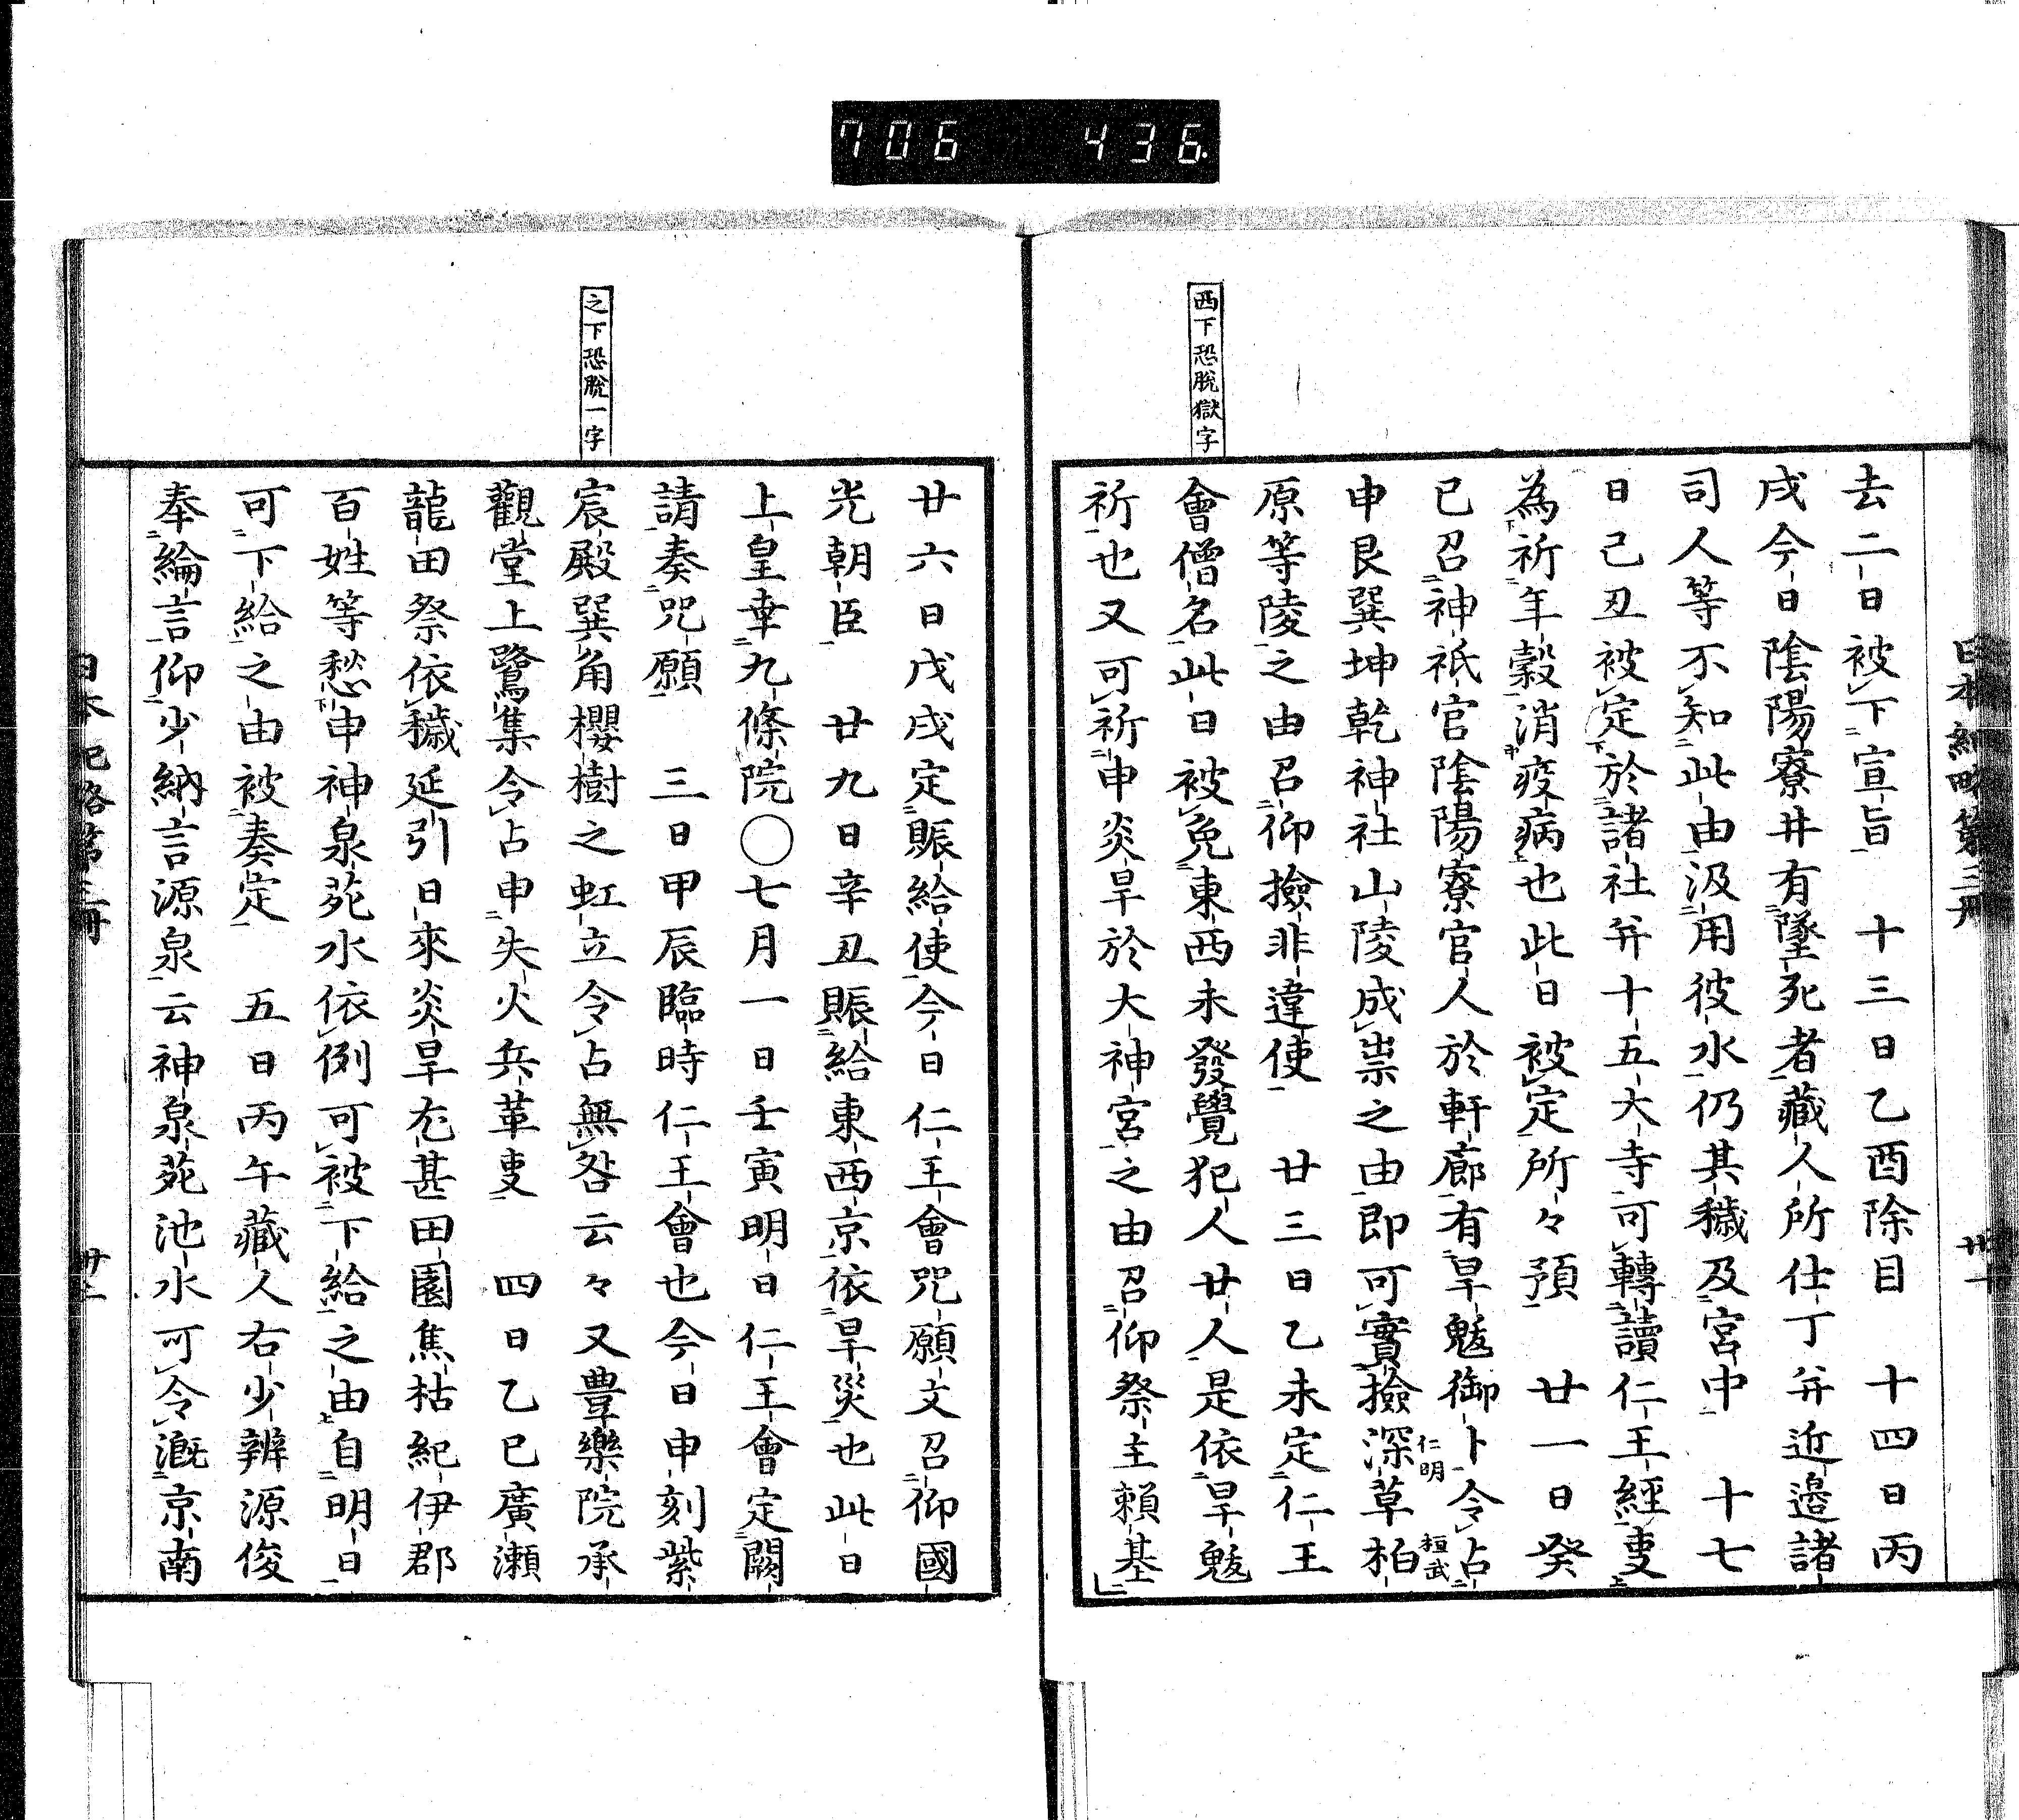 706 436
日本紀略第三冊 卅一
西下恐脫獄字
去二日被下宣旨 十三日乙酉除目 十四日丙
戌今日陰陽寮井有墜死者藏人所仕丁并近邉諸
司人等不知此由汲用彼水仍其穢及宮中 十七
日己丑被定於諸社并十五大寺可轉讀仁王經叓
為祈年穀消疫病也此日被定所々預 廿一日癸
巳召神祇官陰陽寮官人於軒廊有旱魃御卜令占
申艮巽坤乾神社山陵成祟之由即可實撿深草仁明柏
原桓武等陵之由召仰撿非違使 廿三日乙未定仁王
會僧名此日被免東西未發覺犯人廿人是依旱魃
祈也又可祈申炎旱於大神宮之由召仰祭主賴基
之下恐脫一字
廿六日戊戌定賑給使今日仁王會咒願文召仰國
光朝臣 廿九日辛丑賑給東西京依旱災也此日
上皇幸九條院〇七月一日壬寅明日仁王會定闕
請奏咒願 三日甲辰臨時仁王會也今日申刻紫
宸殿巽角櫻樹之虹立令占無咎云々又豊樂院承
觀堂上鷺集令占申失火兵革叓 四日乙巳廣瀨
龍田祭依穢延引日來炎旱尤甚田園焦枯紀伊郡
百姓等愁申神泉苑水依例可被下給之由自明日
可下給之由被奏定 五日丙午藏人右少辨源俊
奉綸言仰少納言源泉云神泉苑池水可令漑京南
日本紀略第三冊